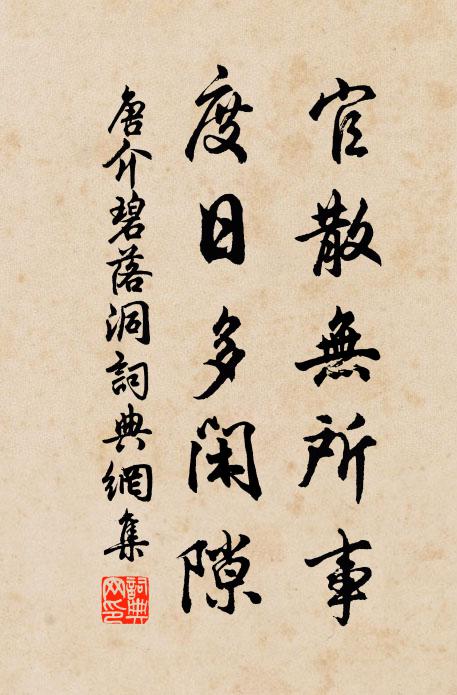 官散無所事
度日多閑隙
唐介碧落洞詞典網集
詞典網印